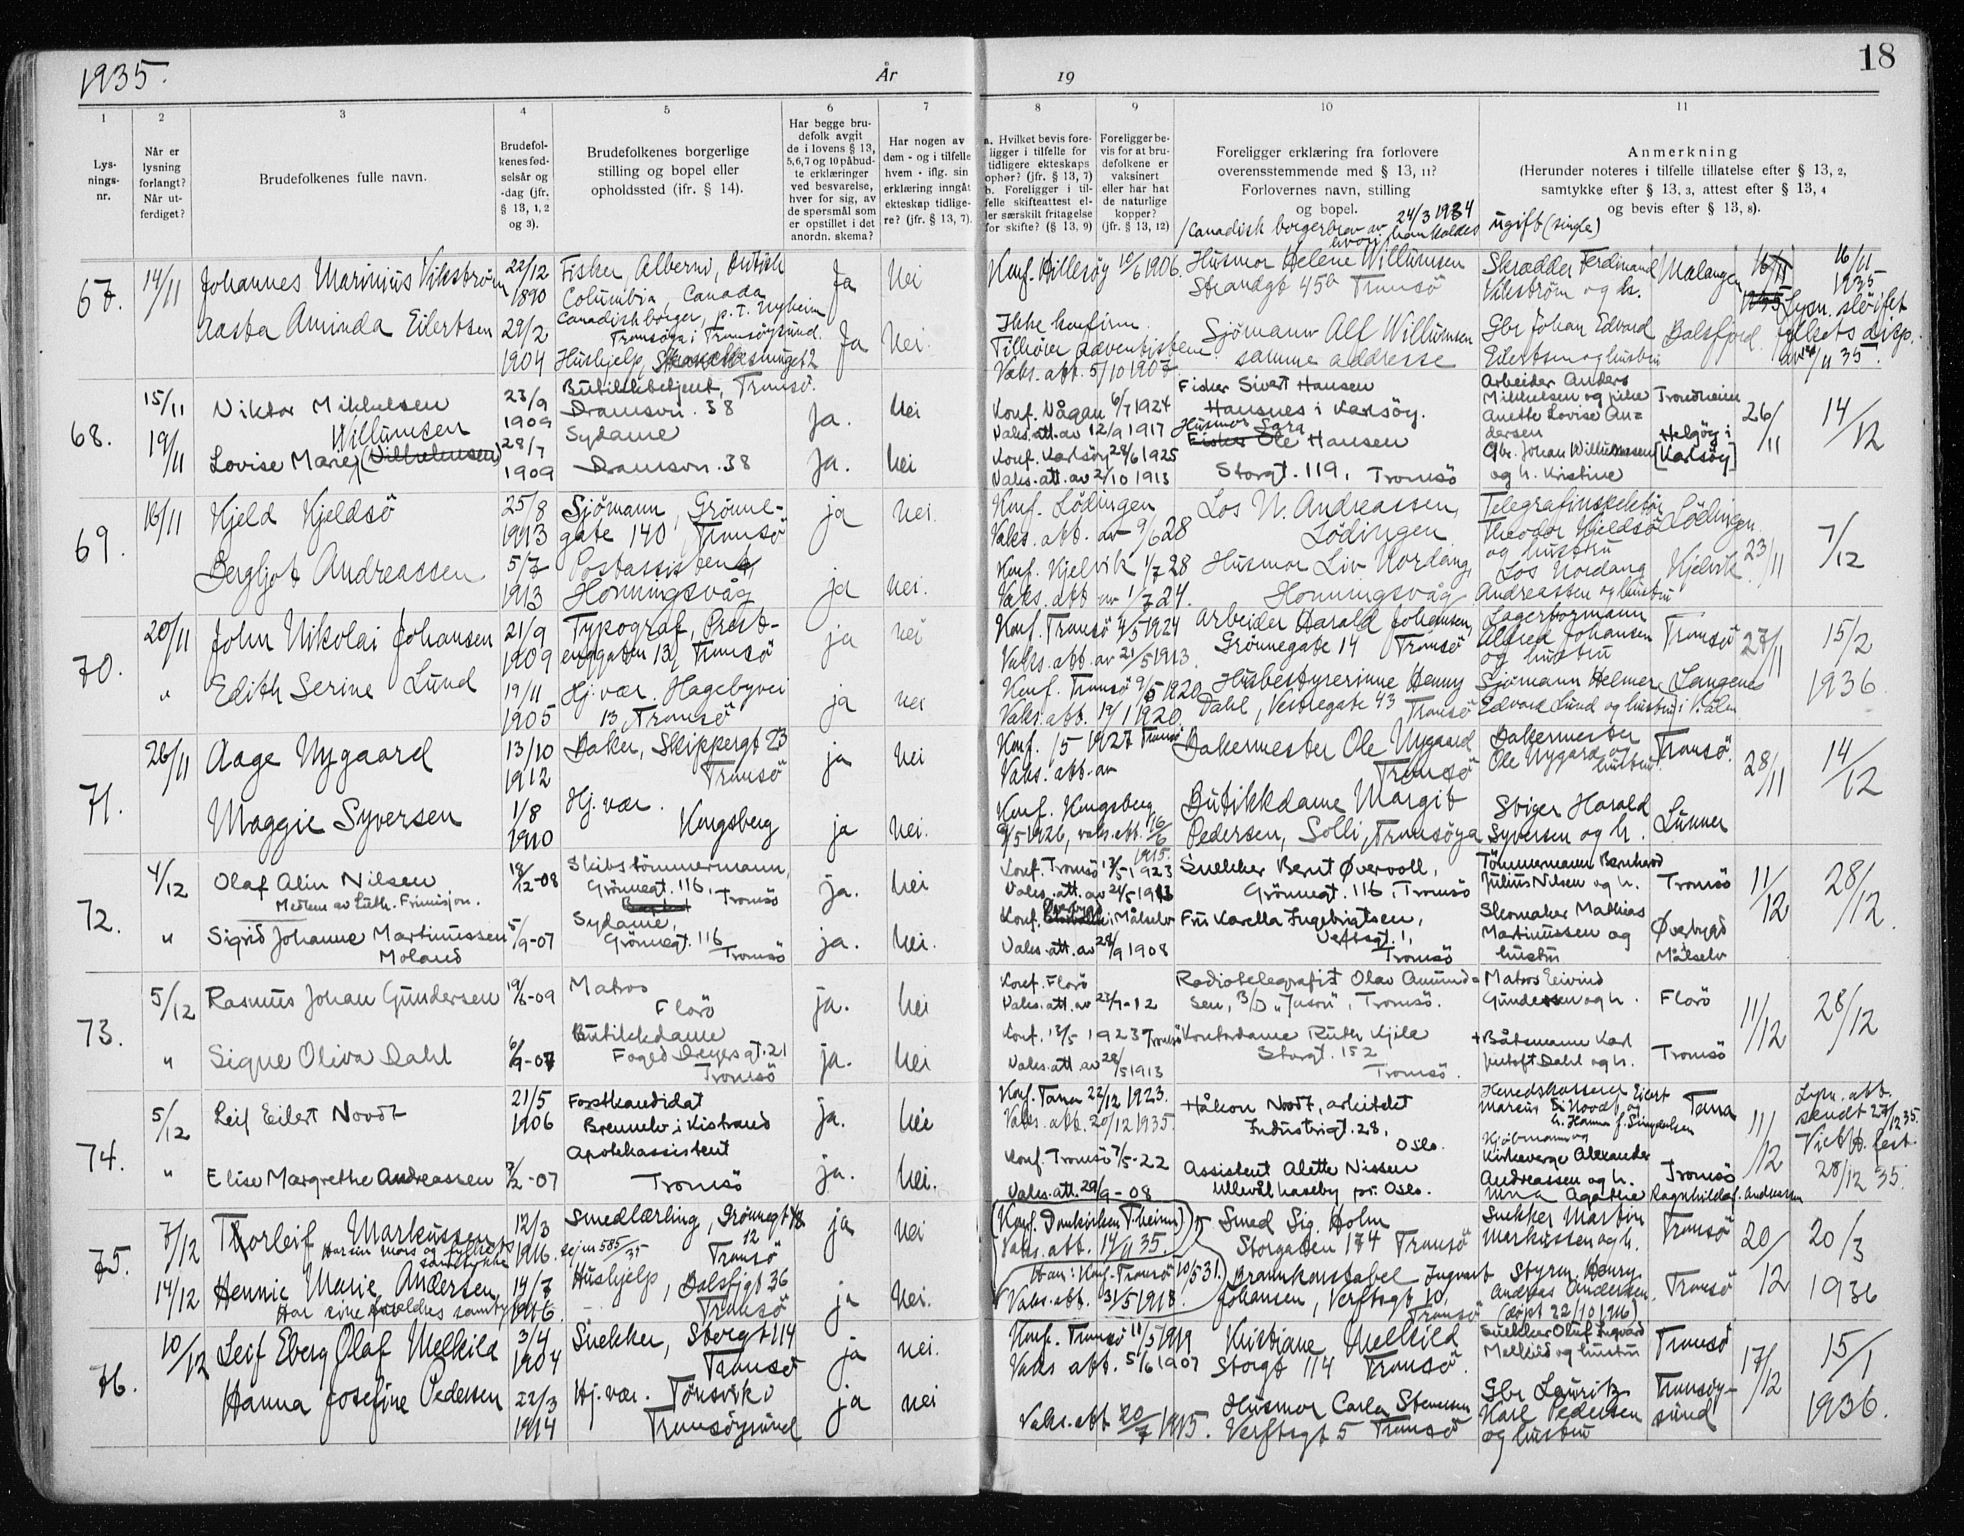 1935.
År
19
18
1
2
3
4
5
6
7
8
9
10
11
Lys-
nings-
nr.
Når er
lysning
forlangt?
Når ut-
ferdiget?
Brudefolkenes fulle navn.
Brudefol-
kenes fød-
selsår og
-dag (jfr.
§ 13, 1, 2
og 3).
Brudefolkenes borgerlige
stilling og bopel eller
opholdssted (ifr. § 14).
Har begge bru-
defolk avgit
de i lovens § 13,
5,6,7 og 10 påbud-
te erklæringer
ved besvarelse,
hver for sig, av
de spørsmål som
er opstillet i det
anordn. skema?
Har nogen av
dem - og i tilfelle
hvem - iflg. sin
erklæring inngått
ekteskap tidlige-
re? (jfr. § 13, 7).
a. Hvilket bevis fore-
ligger i tilfelle for
tidligere ekteskaps
ophør? (jfr. § 13, 7)
b. Foreligger i til-
felle skifteattest el-
ler særskilt fritagelse
for skifte? (§ 13, 9)
Foreligger be-
vis for at bru-
defolkene er
vaksinert
eller har hat
de naturlige
kopper?
(jfr. § 13, 12)
Foreligger erklæring fra forlovere
overensstemmende med § 13, 11?
Forlovernes navn, stilling
og bopel.
Anmerkning
(Herunder noteres i tilfelle tillatelse efter § 13, 2,
samtykke efter § 13, 3, attest efter § 13, 4
og bevis efter § 13, 8).
Canadisk borgerbrev av 24/3 1934
hvori han kaldes ugift (single)
67. 14/11 Johannes Marinius Vikstrøm 22/12 1890
Fisker, Alberni, British
Columbia, Canada
Canadisk borger, p.t. Nyheim
Tromsøya i Tromsøysund.
Ja Nei
Konf. Hillesøy 10/6 1906.
Husmor Helene Willumsen
Strandgt 45b Tromsö
Skrædder Ferdinand
Vikström og h.
Malangen
16/11
1935
16/11
1935
Aasta Aminda Eilertsen 29/2 1904
Hushjelp,
Ja Nei.
Ikke konfirm.
Tilhører adventistene
Vaks. att. 5/10 1907.
Sjömann Alf Willumsen
samme addresse
Gbr Johan Edvard
Eilertsen og hustru
Balsfjord.
Lysn. sløifet
fylkets disp.
68. 15/11 Viktor Mikkelsen
Willumsen
23/9 1909
Butikkbetjent, Tromsö.
Dramsvn. 38
Ja. Nei
Konf. Vågan 6/7 1924
Vaks. att. av 12/9 1917
Fisker Sivert Hansen
Hansnes i Karlsöy.
Arbeider Anders
Mikkelsen og pike
Anette Lovise An=
dersen
Trondheim
26/11
14/12
19/11 Lovise Marie (Vilhelmsen) 28/7 1909
Sydame
Dramsvn. 38
Ja. Nei
Konf. Karlsöy 28/6 1925
Vaks. att. av 2/10 1913
Husmor Sara
Fisker Ole Hansen
Storgt. 119, Tromsö
Gbr. Johan Willumsen
og h. Kristine
Helgöy i
[Karlsöy]
69. 16/11 Kjeld Kjeldsö 25/8 1913
Sjömann, Grönne-
gate 140, Tromsö
ja nei.
Konf. Lödingen
Vaks. att. av 9/6 28
Los N. Andreassen,
Lödingen
Telegrafinspektör
Theodor Kjeldsö
og hustru
Lödingen.
23/11
7/12
Bergljot Andreassen 5/7 1913
Postassistent,
Honningsvåg
ja nei.
Konf. Kjelvik 1/7 28
Vaks. att av 1/7 24.
Husmor Liv Nordang,
Honningsvåg
Los Nordang
Andreassen og hustru
Kjelvik
70. 20/11 John Nikolai Johansen 21/9 1909
Typograf, Prest-
enggaten 13, Tromsö
ja nei
Konf. Tromsö 4/5 1924
Vaks. att. av 21/5 1913.
Arbeider Harald Johansen,
Grönnegate 14 Tromsö
Lagerformann
Alfred Johansen
og hustru
Tromsö
27/11
15/2
1936
" Edith Serine Lund 19/11 1905
Hj. vær. Hagebyvei
13, Tromsö
ja nei
Konf. Tromsö 9/5 1920
Vaks. att. 19/1 1920.
Husbestyrerinne Henny
Dahl, Vestregate 43 Tromsö
Sjömann Helmer
Edvard Lund og hustru
Langenes
71. 26/11 Aage Nygaard 13/10 1912
Baker, Skippergt 23
Tromsö
ja nei
Konf. /5 1927 Tromsö
Vaks. att. av
Bakermester Ole Nygaard
Tromsö
Bakermester
Ole Nygard og
hustru.
Tromsö.
28/11
14/12
Maggie Syversen 1/8 1910
Hj. vær.
Kongsberg
ja nei.
Konf. Kongsberg
9/5 1926, vaks. att. 16/6
1915.
Butikkdame Margit
Pedersen, Solli, Tromsöya
Stiger Harald
Syversen og h.
Lunner
72. 4/12 Olaf Alin Nilsen
Medlem av Luth. Frimisjon.
18/12-08
Skibstömmermann,
Grönnegt. 116, Tromsö
ja. Nei
Konf. Tromsö 13/5-1923
Vaks. att. av 24/5-1913
Snekker Bernt Øvervoll,
Grönnegt. 116, Tromsö
Tömmermann Bernhard
Julius Nilsen og h.
Tromsö
11/12
28/12.
" Sigrid Johanne Martinussen
Moland
5/9-07
Sydame,
Grönnegt. 116
Tromsö
ja. Nei.
Øverbygd
Konf. i Målselv
Vaks. att. av 28/9 1908
Fru Karella Ingebrigtsen,
Verftsgt. 1,
Tromsö
Skomaker Mathias
Martinussen og
hustru
Øverbygd
Målselv
73. 5/12 Rasmus Johan Gundersen 19/6-09
Matros
Florö
ja. Nei
Konf. Florö
Vaks. att. av 23/9-12
Radiotelegrafist Olav Amund=
sen, Tromsö.
Matros Eivind
Gundersen og h.
Florö
11/12
28/12
" Signe Oliva Dahl 6/9-07
Butikkdame
Foged Dreyers gt. 21
Tromsö
ja. Nei
Konf. 13/5 1923 Tromsö
Vaks. att. av 28/5 1913
Kontordame Ruth Kjile
Storgt. 152
Tromsö.
+ Båtsmann Karl
Dahl og h.
Tromsö
74. 5/12 Leif Eilert Noodt 21/5 1906
Forstkandidat
Brennelv i Kistrand
ja. Nei
Konf. Tana 22/12 1923.
Vaks. att. 20/12 1935.
Håkon Noodt, arkitekt
Industrigt. 28,
Oslo.
Herredskasserer Eilert
Marcus Noodt og
h. Hanna f.
Tana
11/12
Lysn. att.
sendt 27/12 35.
28/12 35.
" Elise Margrethe Andreassen 3/2-07
Apotekassistent
Tromsö
ja. Nei.
Konf. Tromsö 7/5-22
Vaks. att. 29/9-08
Assistent Alette Nissen
Ullevål haseby pr. Oslo.
Kjöbmann og
Kirkeverge Alexander
Andreassen og h.
Tromsö
75. 7/12 Thorleif Markussen
Har sin mors og fylkets
samtykke
12/3 1916.
Smedlærling, Grönnegt 48
Tromsö
ja nei
(Konf. Domkirken T.heim)
Vaks. att. 14/11 35.
Smed Sig. Holm
Storgaten 174 Tromsö
Snekker Martin
Markussen og h.
Tromsö
20/12
20/3
1936
14/12 Hennie Marie Andersen
Har sine foreldres samtykke
14/7 1916.
Hushjelp, Balsfjgt 36
Tromsö
ja nei.
Konf. Tromsö 10/5 31.
Vaks. att. 31/5 1918.
Brannkonstabel Ingvart
Johansen, Verftsgt 10,
Tromsö
Styrm. Henry
Andreas Andersen.
(döpt 22/10 1916)
Tromsö
76. 10/12 Leif Eberg Olaf Melkild 3/4 1904
Snekker, Storgt 114
Tromsö
ja nei.
Konf. Tromsö 11/5 1919
Vaks att. 5/6 1907
Kristiane Melkild
Storgt 114 Tromsö.
Snekker Oluf Ingvard
Melkild og hustru
Tromsö
17/12
15/1
1936.
Hanna Josefine Pedersen 22/3 1914
Hj. vær. Tönsvik i
Tromsöysund
ja nei
Vaks. att 20/7 1915.
Husmor Carla Stenersen
Verftsgt 5 Tromsö
Gbr Lauritz
Karl Pedersen
og hustru
Tromsöy-
sund